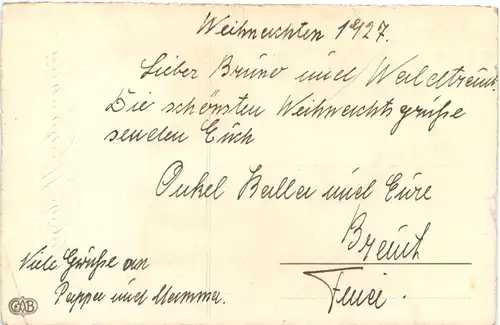 Weihnachten 1927.
Lieber Bruno und Waldtraut.
Die schönsten Weihnachtsgrüße
senden Euch
Onkel Kalla und Eure
Braut
Viele Grüße an
Pappa und Mamma.
GAB